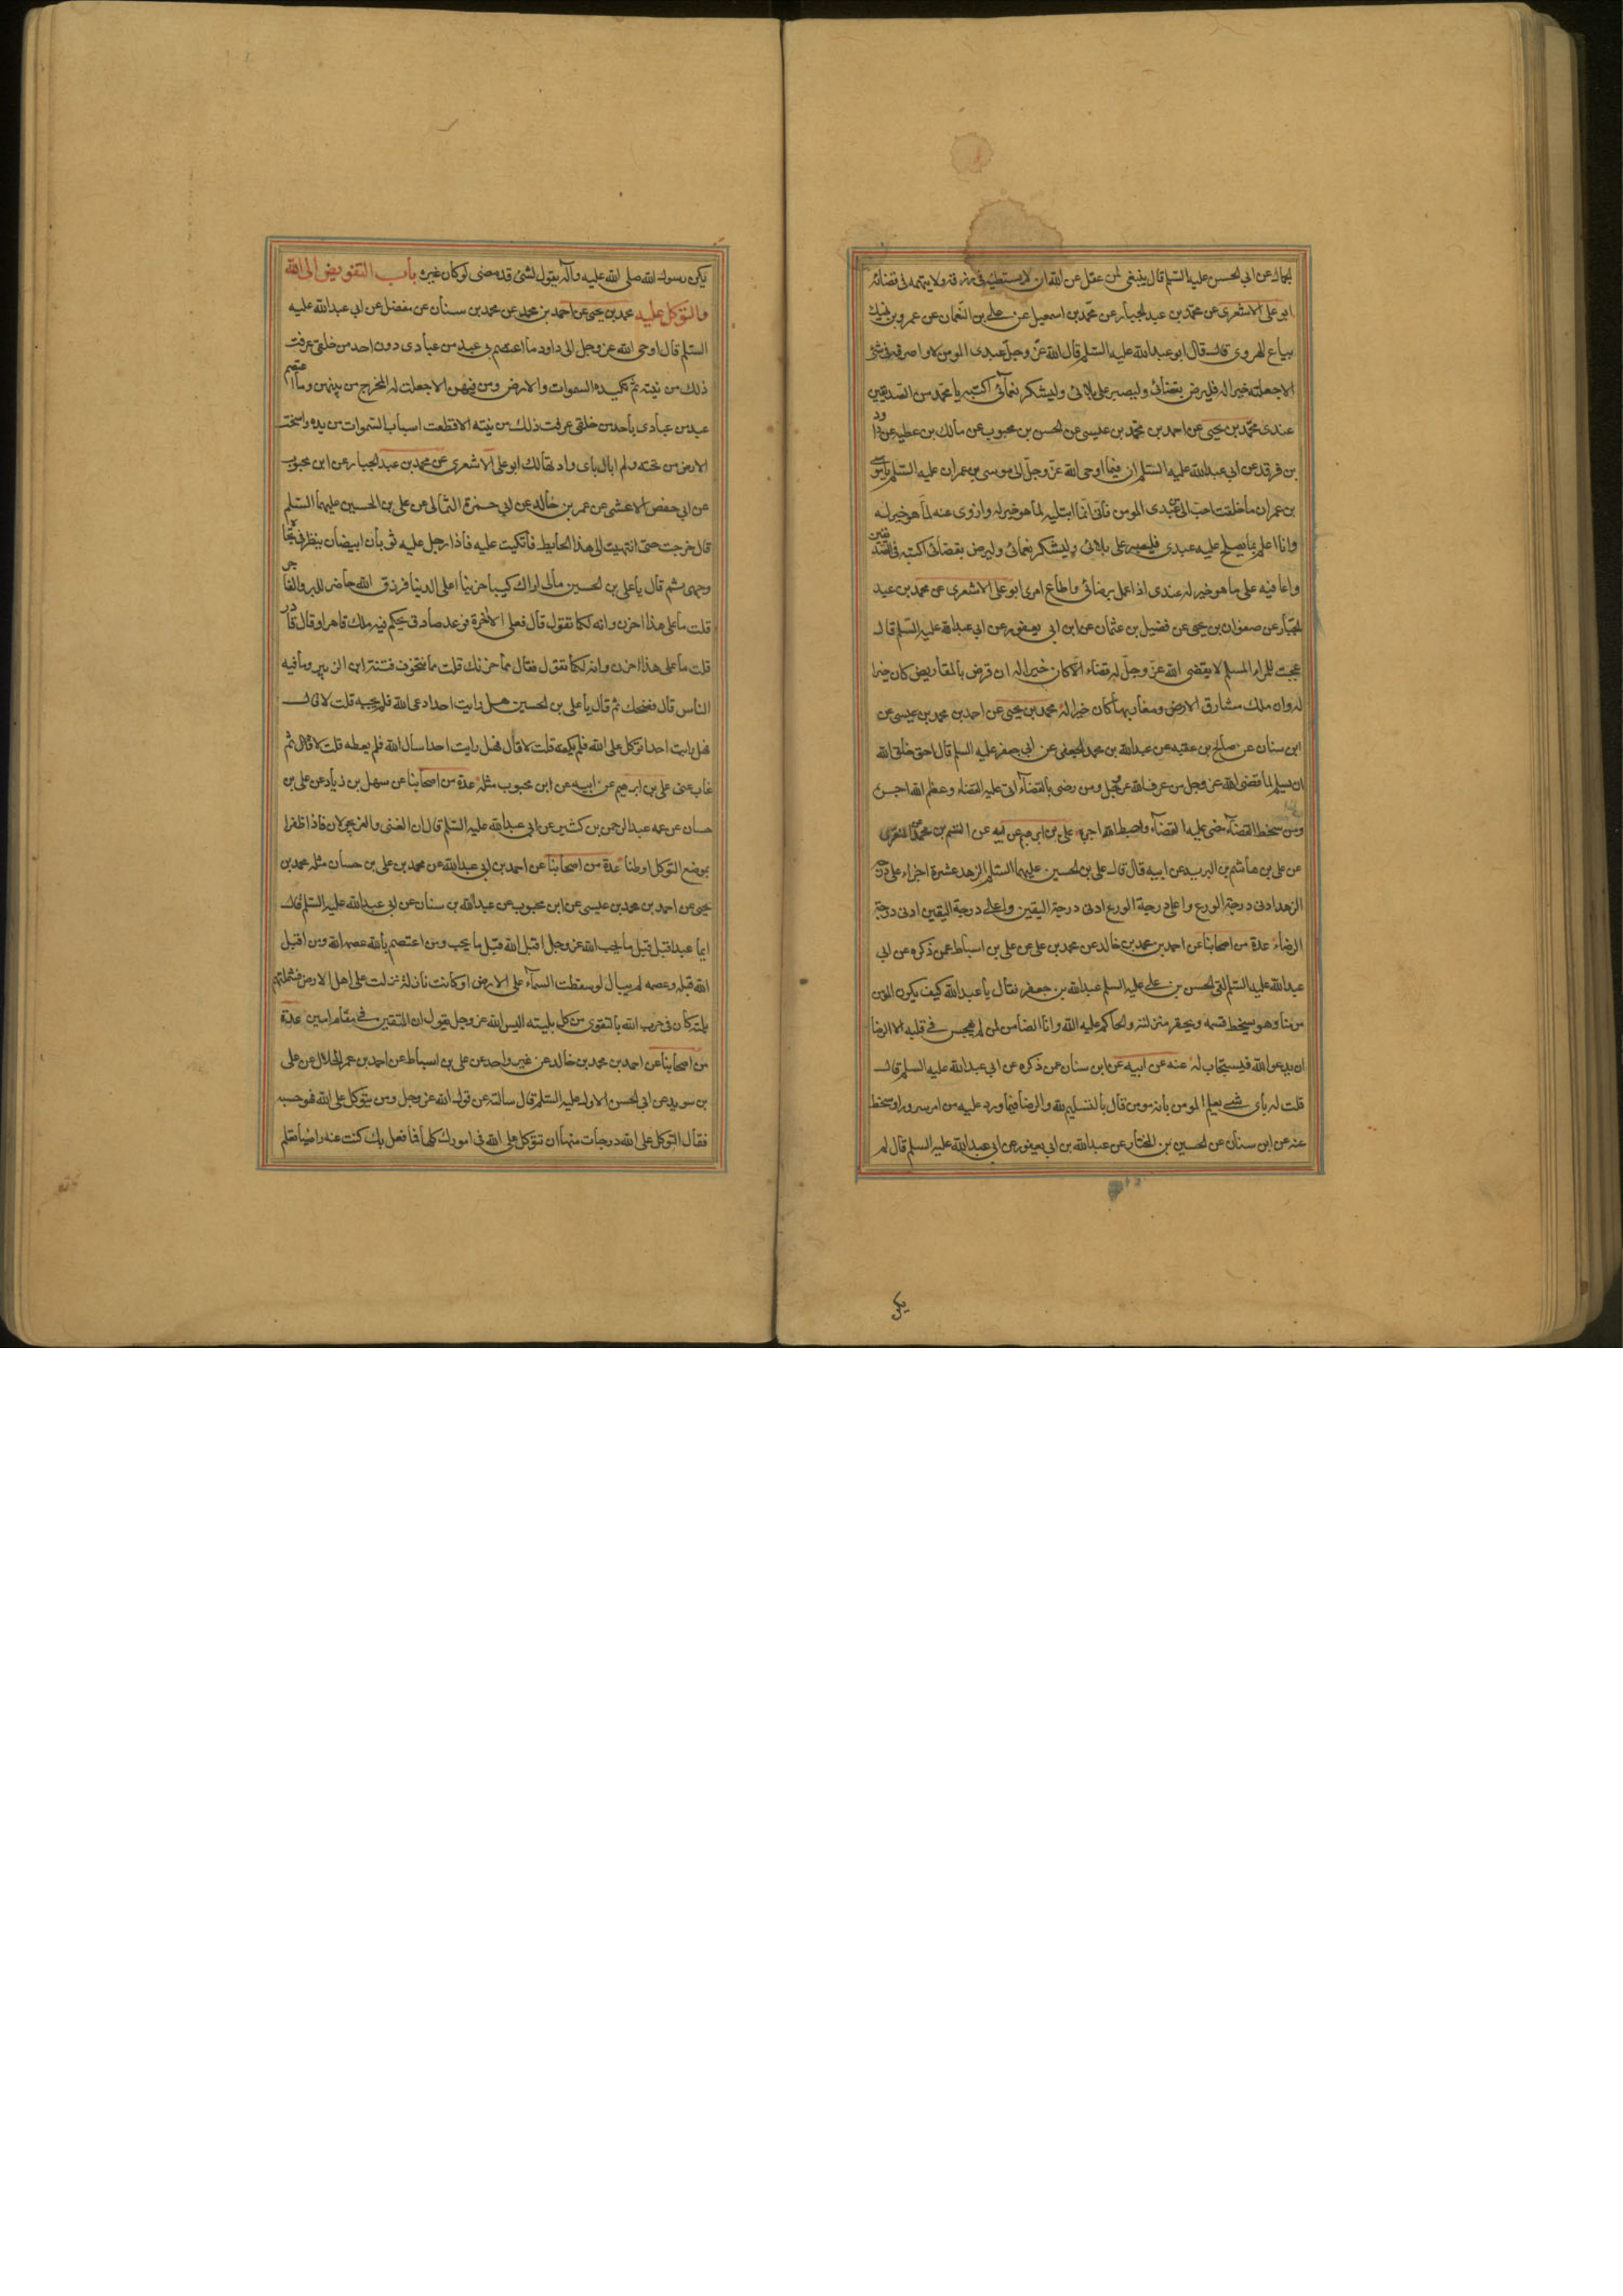 الجمال عن ابي الحسن عليه السلم قال ينبغي لمن عقل عن الله ان لا يستبطئه في رزقه ولا يتهمه في قضائه
ابو علي الاشعري عن محمد بن عبد الجبار عن محمد بن اسمعيل عن علي بن النعمان عن عمرو بن نهيك
بياع الهروي قال قال ابو عبد الله عليه السلم قال الله عز وجل عبدي المومن لا اصرفه في شئ
الا جعلته خيرا له فليرض بقضائي وليصبر على بلائي وليشكر نعمائي اكتبه يا محمد من الصديقين
عندي محمد بن يحيى عن احمد بن محمد بن عيسى عن الحسن بن محبوب عن مالك بن عطيه عن داود
بن فرقد عن ابي عبد الله عليه السلم ان فيما اوحى الله عز وجل الى موسى بن عمران عليه السلم يا موسى
بن عمران ما خلقت احب الى من عبدي المومن فاني انما ابتليه لما هو خير له وازوي عنه لما هو خير له
وانا اعلم بما يصلح عليه عبدي فليصبر على بلائي وليشكر نعمائي وليرض بقضائي اكتبه في الصديقين
واعافيه على ما هو خير له عندي اذا عمل برضائي واطاع امري ابو علي الاشعري عن محمد بن عبد
الجبار عن صفوان بن يحيى عن فضيل بن عثمان عن ابن ابي يعفور عن ابي عبد الله عليه السلم قال
عجبت للمراء المسلم لا يقضي الله عز وجل له قضاء الا كان خيرا له ان قرض بالمقاريض كان خيرا
له وان ملك مشارق الارض ومغاربها كان خيرا له محمد بن يحيى عن احمد بن محمد بن عيسى عن
ابن سنان عن صالح بن عقبه عن عبد الله بن محمد الجعفي عن ابي جعفر عليه السلم قال احق خلق الله
ان يسلم لما قضى الله عز وجل من عرف الله عز وجل ومن رضي بالقضاء اتى عليه القضاء وعظم الله اجره
ومن سخط القضاء مضى عليه القضاء واحبط الله اجره علي بن ابرهيم عن ابيه عن القسم بن محمد عن المنقري
عن علي بن هاشم بن البريد عن ابيه قال قال علي بن الحسين عليهما السلم الزهد عشرة اجزاء اعلى درجة
الزهد ادنى درجة الورع واعلى درجة الورع ادنى درجة اليقين واعلى درجة اليقين ادنى درجة
الرضاء عدة من اصحابنا عن احمد بن محمد بن خالد عن محمد بن علي عن علي بن اسباط عمن ذكره عن ابي
عبد الله عليه السلم لقي الحسن بن علي عليه السلم عبد الله بن جعفر فقال يا عبد الله كيف يكون المومن
مومنا وهو يسخط قسمه ويحقر منزلته والحاكم عليه الله وانا الضامن لمن لم يهجس في قلبه الا الرضا
ان يدعو الله فيستجاب له عنه عن ابيه عن ابن سنان عن ذكره عن ابي عبد الله عليه السلم قال
قلت له باي شيء يعلم المومن بانه مومن قال بالتسليم لله والرضا فيما ورد عليه من امر سرور او سخط
عنه عن ابن سنان عن الحسين بن المختار عن عبد الله بن ابي يعفور عن ابي عبد الله عليه السلم قال لم
يكن
يكن رسول الله صلى الله عليه وآله يقول لشئ قد مضى لو كان غيره باب التفويض الى الله
والتوكل عليه محمد بن يحيى عن احمد بن محمد عن محمد بن سنان عن مفضل عن ابي عبد الله عليه
السلم قال اوحى الله عز وجل الى داود ما اعتصم بي عبد من عبادي دون احد من خلقي عرفت
ذلك من نيته ثم تكيده السموات والارض ومن فيهن الا جعلت له المخرج من بينهن وما اعتصم
عبد من عبادي باحد من خلقي عرفت ذلك من نيته الا قطعت اسباب السموات من يديه واسخت
الارض من تحته ولم ابال باي واد تهالك ابو علي الاشعري عن محمد بن عبد الجبار عن ابن محبوب
عن ابي حفص الاعشى عن عمر بن خالد عن ابي حمزة الثمالي عن علي بن الحسين عليهما السلم
قال خرجت حتى انتهيت الى هذا الحايط فاتكيت عليه فاذا رجل عليه ثوبان ابيضان ينظر في تجاه
وجهي ثم قال يا علي بن الحسين مالي اراك كئيبا حزينا اعلى الدنيا فرزق الله حاضر للبر والفاجر
قلت ما على هذا احزن وانه لكما تقول قال فعلى الاخرة فوعد صادق يحكم فيه ملك قاهر او قال قادر
قلت ما على هذا احزن وانه لكما تقول فقال مما حزنك قلت مما نتخوف فتنة ابن الزبير وما فيه
الناس قال فضحك ثم قال يا علي بن الحسين هل رايت احدا دعى الله فلم يجبه قلت لا قال
فهل رايت احدا توكل على الله فلم يكفه قلت لا قال فهل رايت احدا سال الله فلم يعطه قلت لا قال ثم
غاب عني علي بن ابرهيم عن ابيه عن ابن محبوب مثله عدة من اصحابنا عن سهل بن زياد عن علي بن
حسان عن عمه عبد الرحمن بن كثير عن ابي عبد الله عليه السلم قال ان الغنى والعز يجولان فاذا ظفرا
بموضع التوكل اوطنا عدة من اصحابنا عن احمد بن ابي عبد الله عن محمد بن علي بن حسان مثله محمد بن
يحيى عن احمد بن محمد بن عيسى عن ابن محبوب عن عبد الله بن سنان عن ابي عبد الله عليه السلم قال
ايما عبد اقبل قبل ما يحب الله عز وجل اقبل الله قبل ما يحب ومن اعتصم بالله عصمه الله ومن اقبل
الله قبله وعصمه لم يبال لو سقطت السماء على الارض او كانت نازلة نزلت على اهل الارض فشملتهم
بلية كان في حزب الله بالتقوى من كل بلية اليس الله عز وجل يقول ان المتقين في مقام امين عدة
من اصحابنا عن احمد بن محمد بن خالد عن غير واحد عن علي بن اسباط عن احمد بن عمر الحلال عن علي
بن سويد عن ابي الحسن الاول عليه السلم قال سالته عن قول الله عز وجل ومن يتوكل على الله فهو حسبه
فقال التوكل على الله درجات منها ان تتوكل على الله في امورك كلها فما فعل بك كنت عنه راضيا تعلم